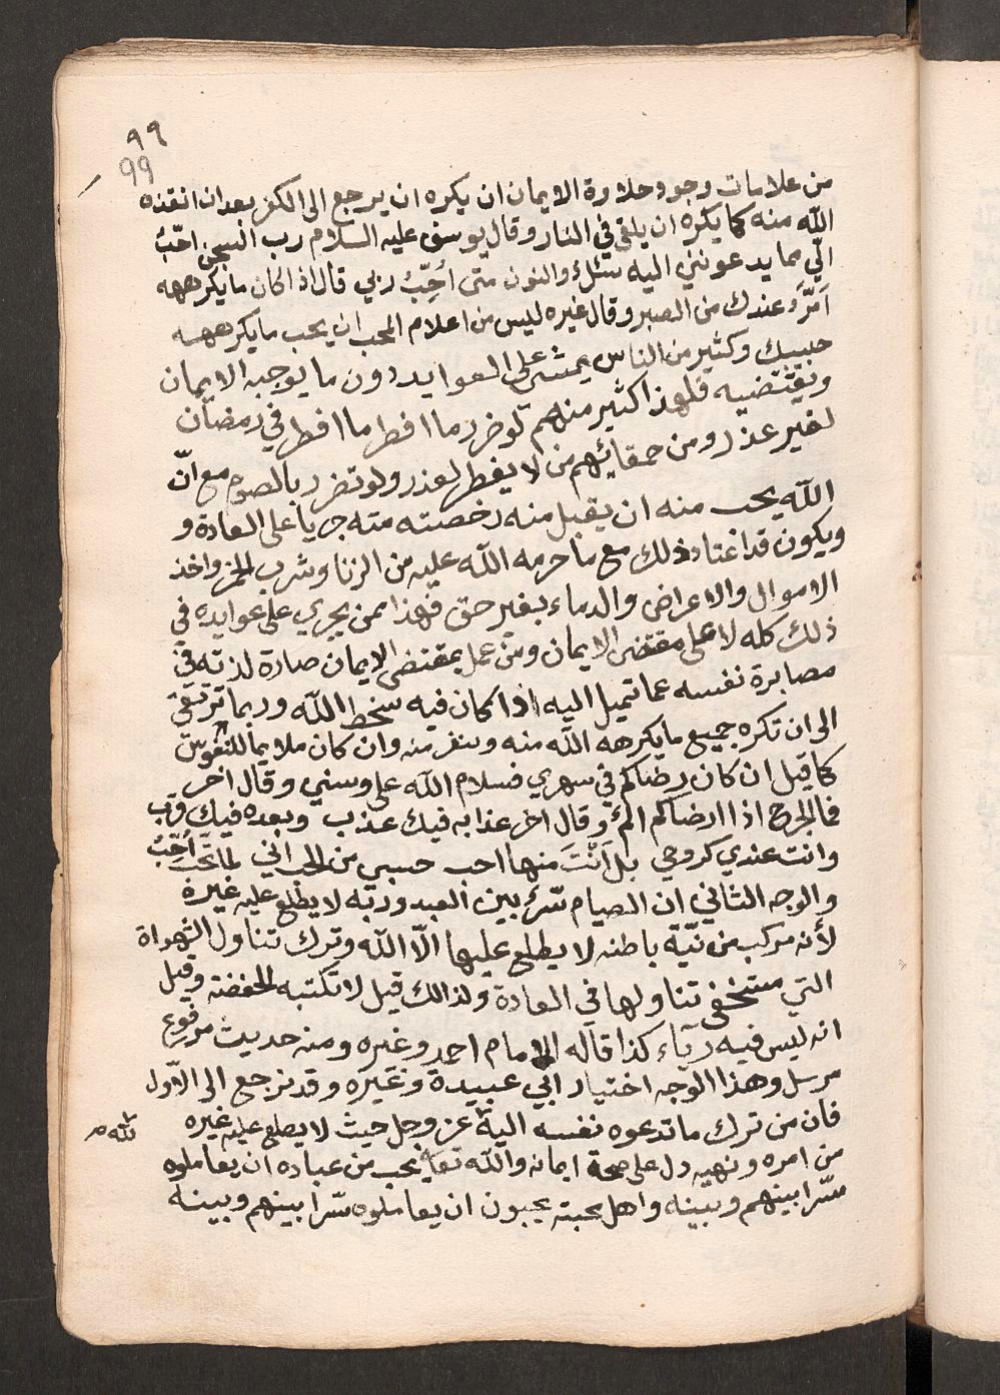 ٩٩
99
من علامات وجود حلاوة الايمان ان يكره ان يرجع الى الكفر بعد ان انقذه
الله منه كما يكره ان يلقى في النار وقال يوسف عليه السلام رب السجن احَبُّ
اليّ مما يدعونني اليه سئل ذوالنون متى اُحِبُّ ربي قال اذا كان ما يكرهه
اَمَرَّ عندك من الصبر وقال غيره ليس من اعلام المحب ان يحب ما يكرهه
حبيبك وكثير من الناس يمشى على العوايد دون ما يوجبه الايمان
ويقتضيه فلهذا كثير منهم لو ضرر ما افطر ما افطر في رمضان
لغير عذر ومن حمقائهم من لا يفطر لعذر ولو تضرر بالصوم مع انّ
الله يحب منه ان يقبل منه رخصته مته جريا على العادة و
ويكون قد اعتاد ذلك مع ما حرمه الله عليه من الزنا وشرب الخمر واخذ
الاموال والاعراض والدماء بغير حق فهذا ممن يجري على عوايده في
ذلك كله لا على مقتضى الايمان ومن عمل بمقتضى الايمان صارة لذته في
مصابرة نفسه عما تميل اليه اذا كان فيه سخط الله وربما ترتقي
الى ان تكره جميع ما يكرهه الله منه وينفر منه وان كان ملايما للنفوس
كما قيل ان كان رضاكم في سهري فسلام الله على وسني وقال اخر
فما لجرح اذا ارضاكم الم وقال اخر عذابه فيك عذب وبعده فيك قرب
وانت عندي كروحي بل اَنْتَ منها احب حسبي من الحب اني لما تحبُّ اُحِبُّ
والوجه الثاني ان الصيام سّر بين العبد وربه لا يطلع عليه غيره
لأنه مركب من نيّة باطنه لا يطلع عليها الّا الله وترك تناول الشهواة
التي مستخفى تناولها في العادة ولذالك قيل لا تكتبه الحفضة وقيل
انه ليس فيه رياء كذا قاله الامام احمد وغيره ومنه حديث مرفوع
مرسل وهذا الوجه اختيار ابي عبيدة وغيره وقد نرجع الى الاوّل
فان من ترك ما تدعوه نفسه اليه عز وجل حيث لا يطلع عليه غيره
لله صح
من امره ونهيه دل على صحة ايمانه والله تعالى يحب من عباده ان يعاملوه
سّرا بينهم وبينه واهل محبته يحبون ان يعاملوه سّرا بينهم وبينه